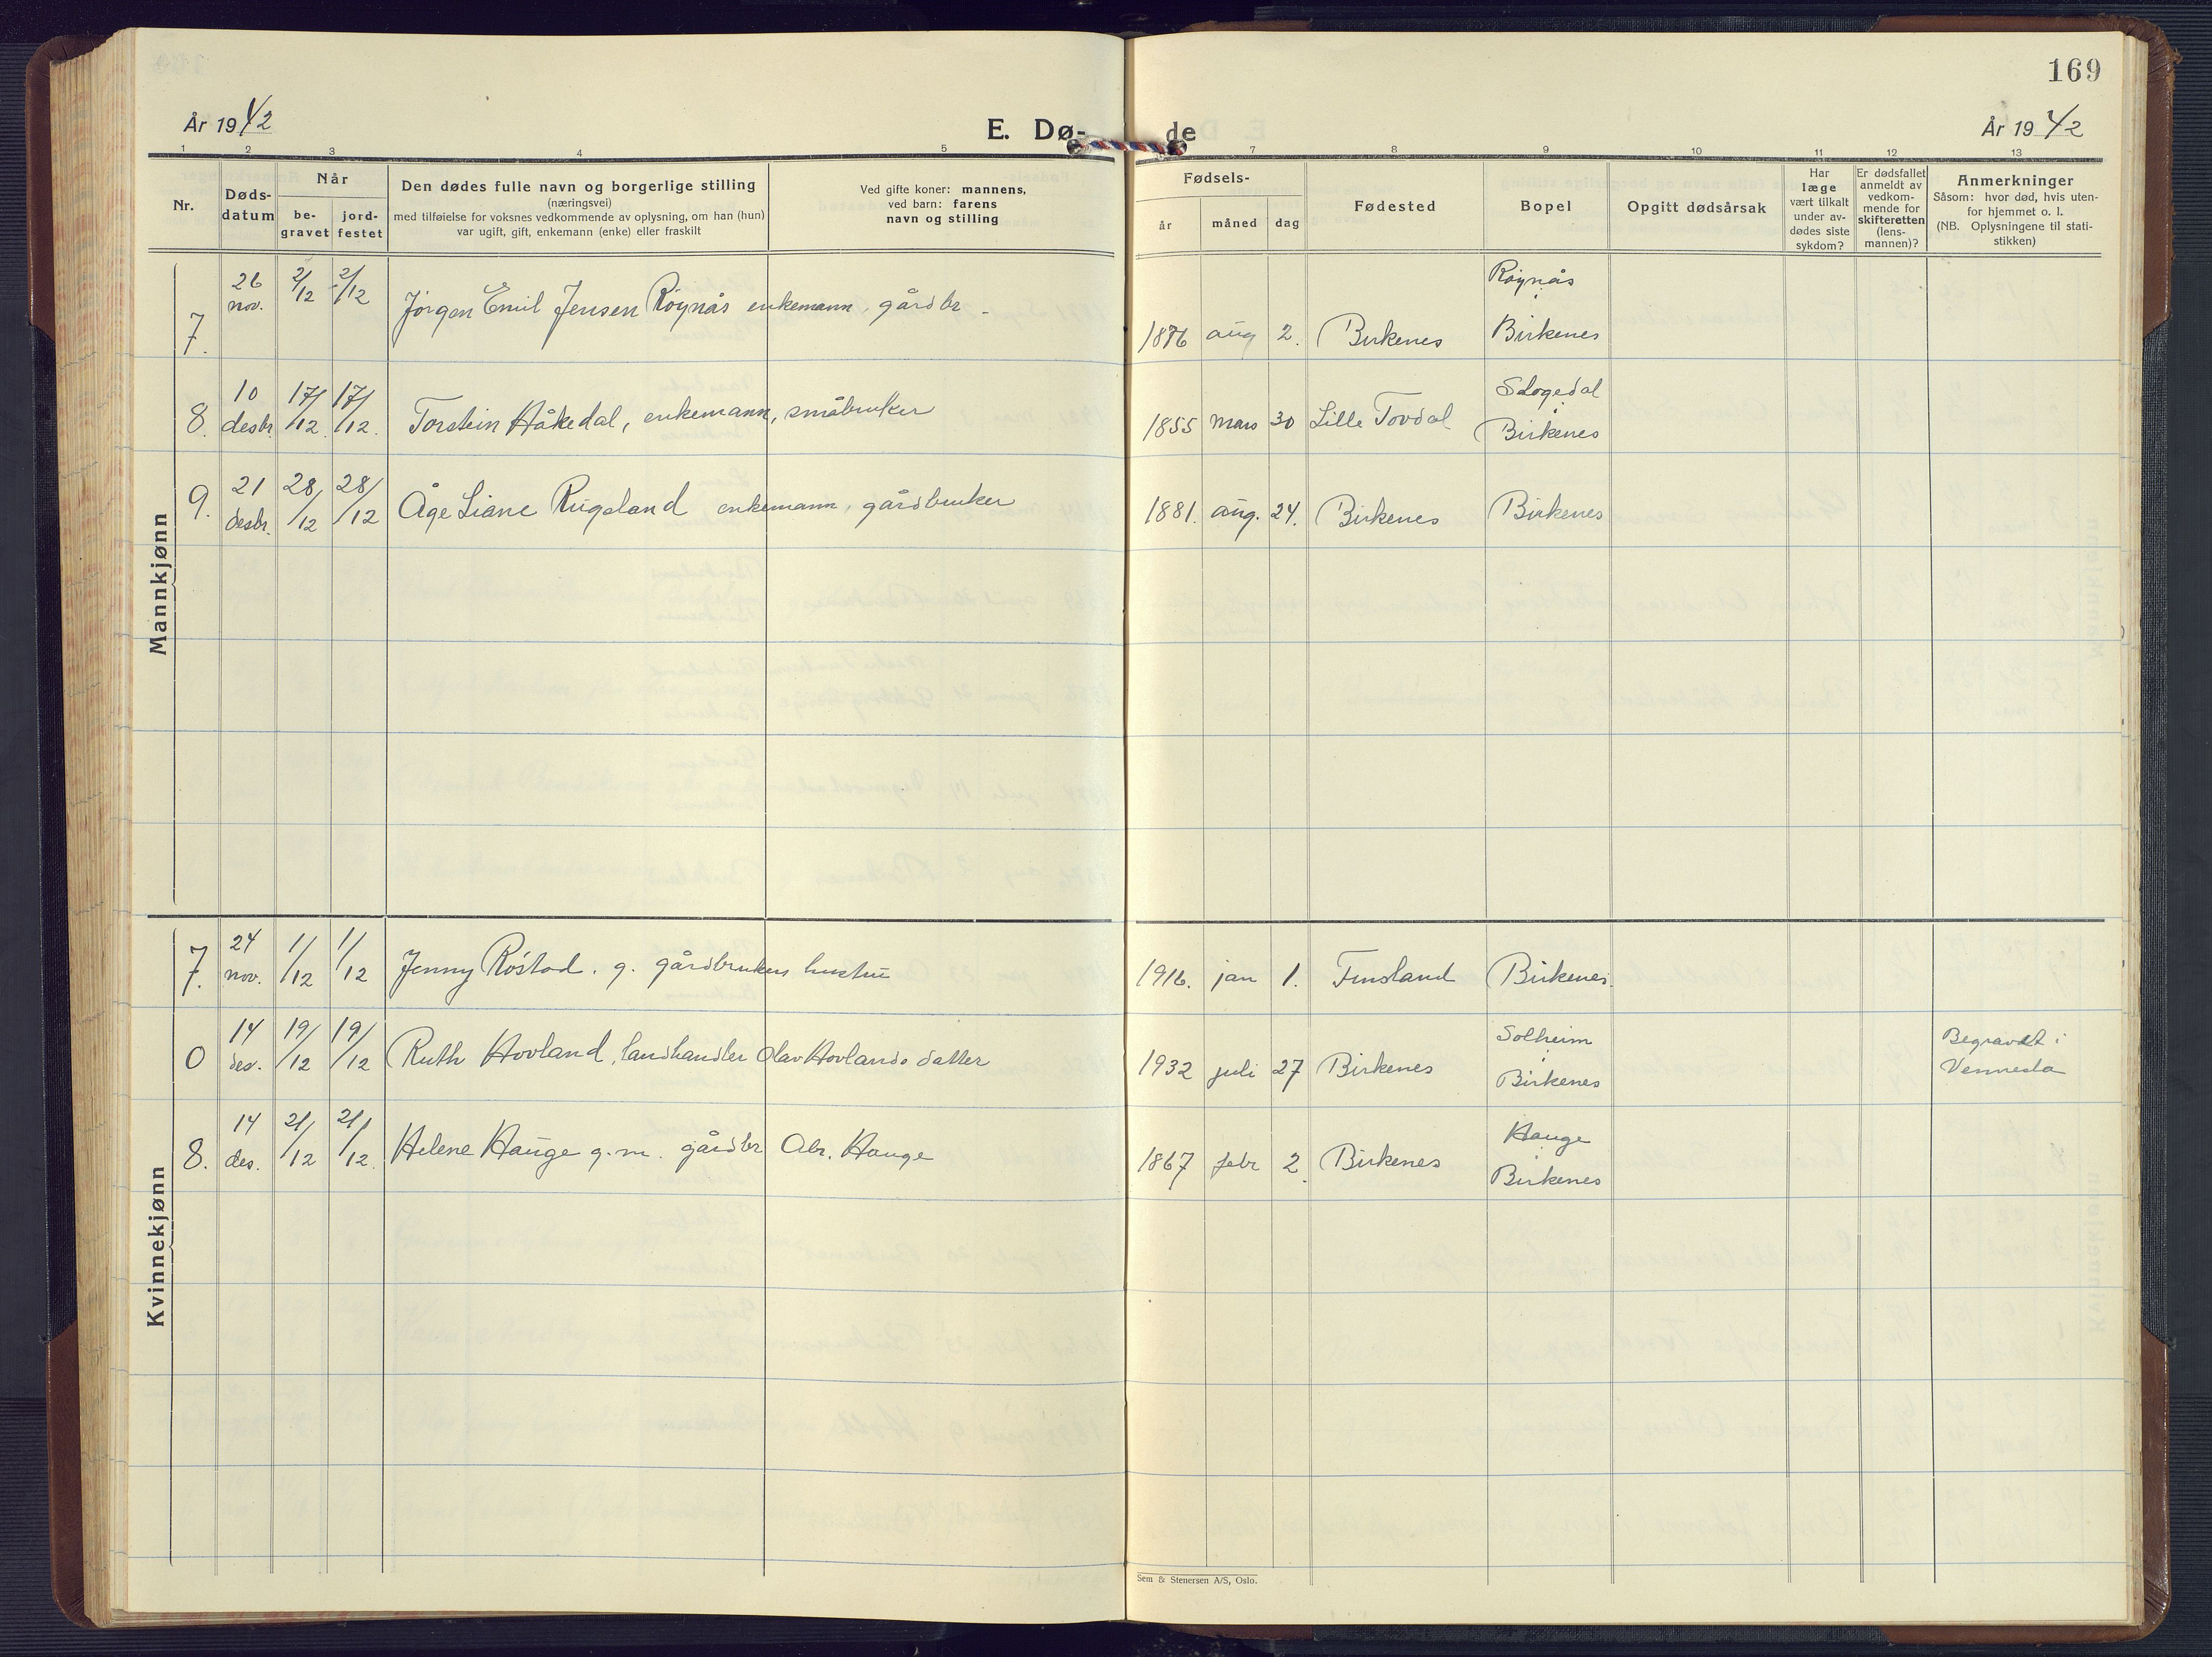 169
År 1942
E. Dø-
de
År 1942
1 2 3 4 5 7 8 9 10 11 12 13
Nr.
Døds-
datum
Når
be-
gravet
jord-
festet
Den dødes fulle navn og borgerlige stilling
(næringsvei)
med tilføielse for voksnes vedkommende av oplysning, om han (hun)
var ugift, gift, enkemann (enke) eller fraskilt
Ved gifte koner: mannens,
ved barn: farens
navn og stilling
Fødsels-
år måned dag
Fødested
Bopel
Opgitt dødsårsak
Har
læge
vært tilkalt
under av-
dødes siste
sykdom?
Er dødsfallet
anmeldt av
vedkom-
mende for
skifteretten
(lens-
mannen)?
Anmerkninger
Såsom: hvor død, hvis uten-
for hjemmet o. l.
(NB. Oplysningene til stati-
stikken)
Mannkjønn
7. 26 nov. 2/12 2/12 Jørgen Emil Jensen Røynås enkemann, gårdbr. 1876 aug 2. Birkenes Røynås Birkenes
8. 10 desbr. 17/12 17/12. Torstein Håkedal, enkemann, småbruker 1855 mars 30 Lille Tovdal Birkenes
9. 21 desbr. 28/12 28/12 Åge Liane Rugsland enkemann, gårdbruker 1881. aug. 24. Birkenes Birkenes
Kvinnekjønn
7. 24 nov. 1/12 1/12 Jenny Røstad. g. gårdbrukers hustru 1916. jan 1. Finsland Birkenes.
0 14 des. 19/12 19/12 Ruth Hovland, landhandler Olav Hovlands datter 1932 juli 27 Birkenes Solheim Birkenes Begravdt i Vennesla
8. 14 des. 21/12 21/12. Helene Hauge g.m. gårdbr Abr. Hauge 1867 febr 2. Birkenes Hauge Birkenes
Sem & Stenersen A/S, Oslo.